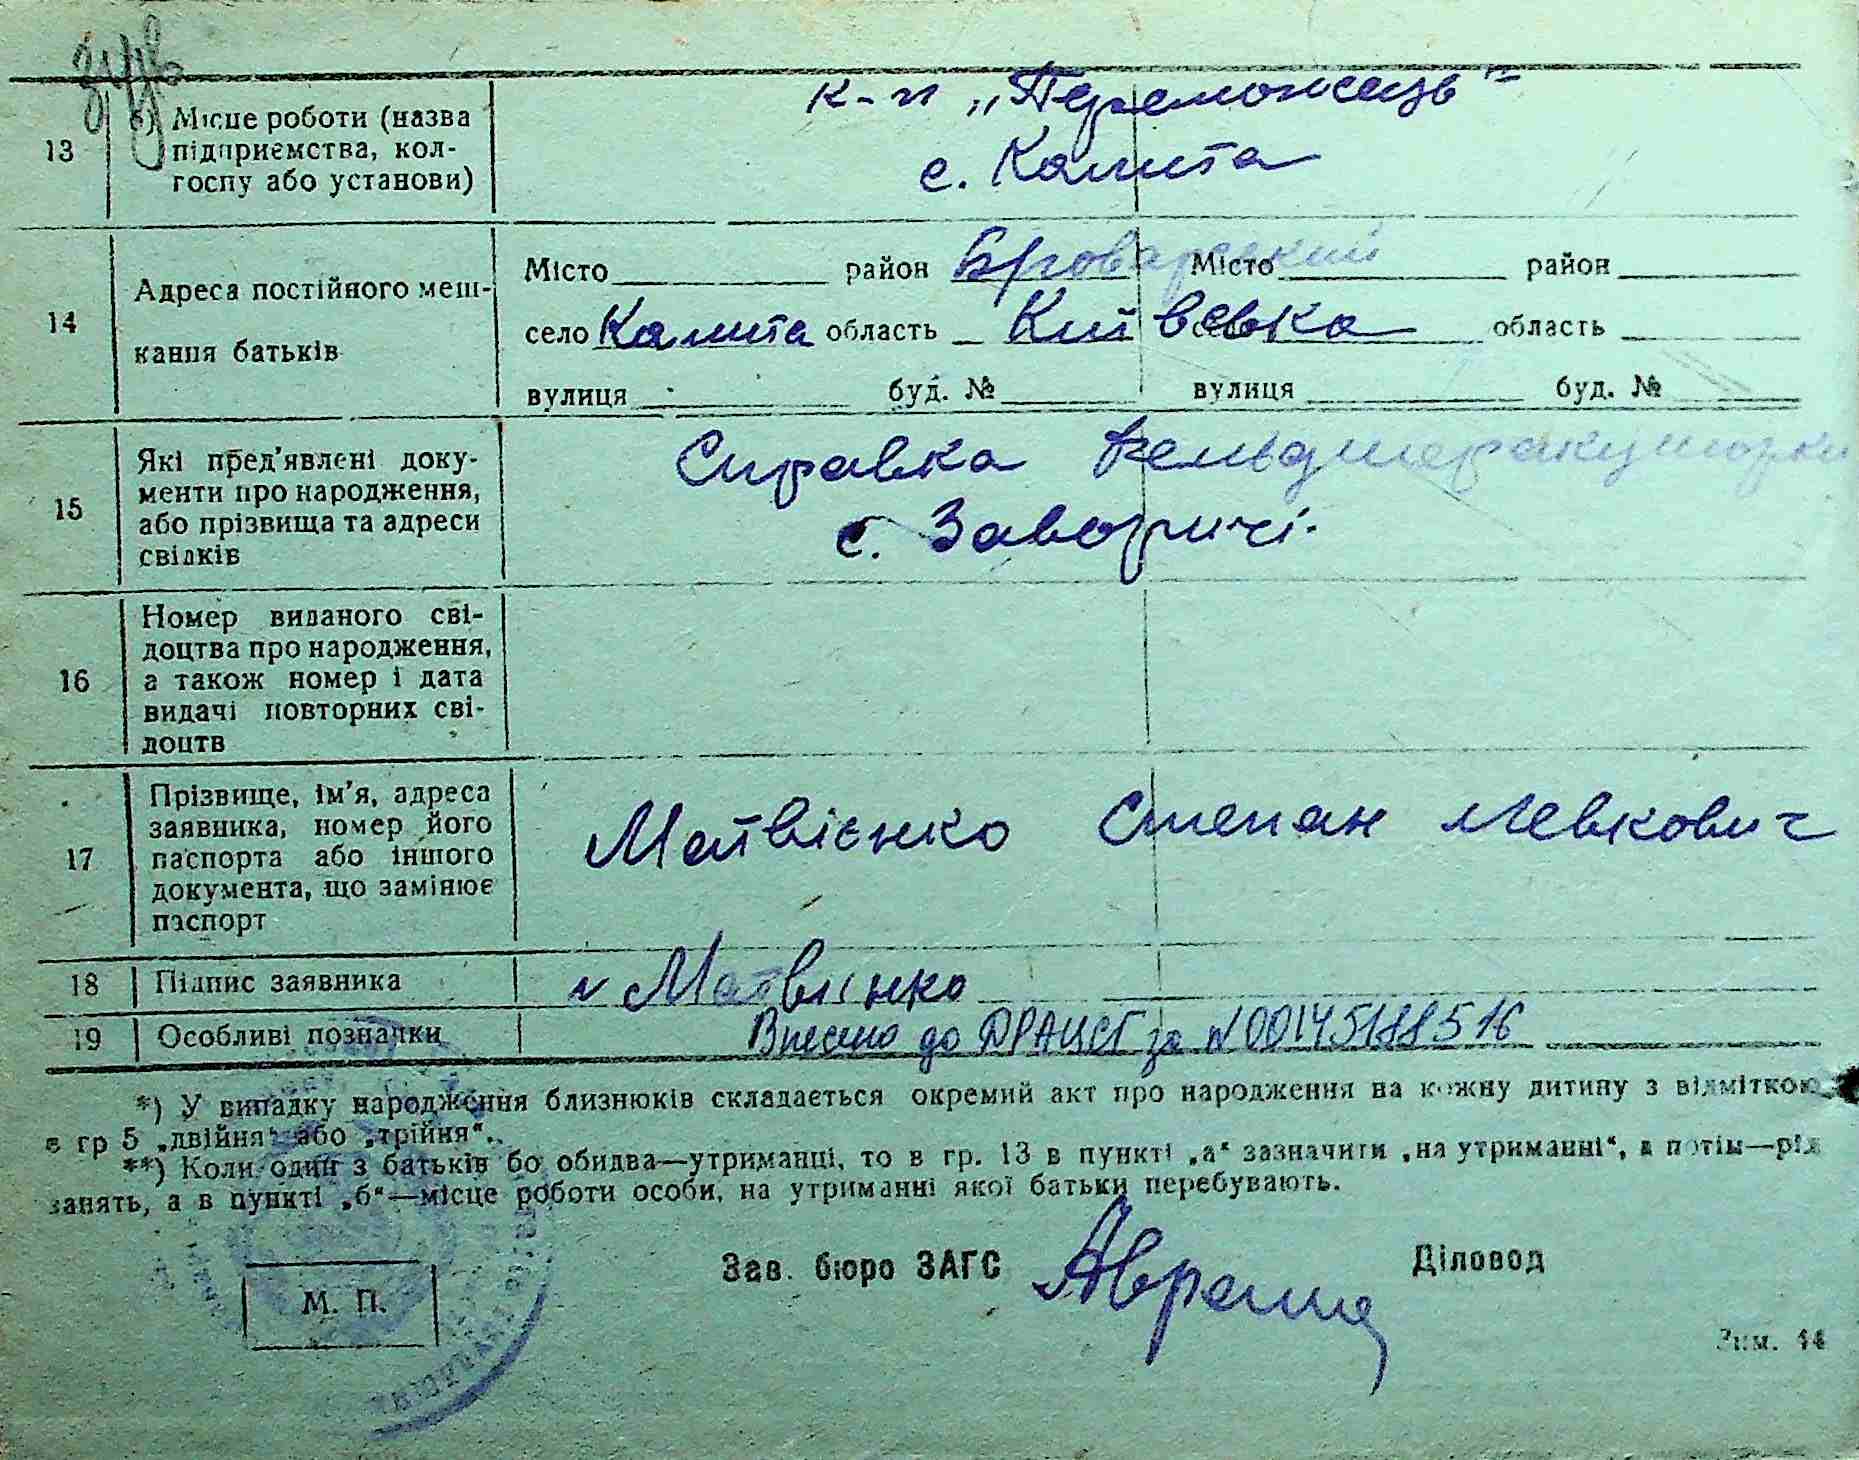 13
б) Місце роботи (назва
підприємства, кол-
госпу або установи)
к-п „Переможець"
с. Калита
14
Адреса постійного меш-
кання батьків
Місто район Броварський Місто район
село Калита область Київська область
вулиця буд. № вулиця буд. №
15
Які пред'явлені доку-
менти про народження,
або прізвища та адреси
свідків
Справка
с. Заворичі.
16
Номер виданого сві-
доцтва про народження,
а також номер і дата
видачі повторних сві-
доцтв
17
Прізвище, ім'я, адреса
заявника, номер його
паспорта або іншого
документа, що замінює
паспорт
Матвієнко Степан Левкович
18 Підпис заявника
Матвиенко
19 Особливі позначки
Внесено до ДРАЦСГ за №00145188516
*) У випадку народження близнюків складається окремий акт про народження на кожну дитину з відміткою
в гр 5 „двійня" або „трійня".
**) Коли один з батьків бо обидва—утриманці, то в гр. 13 в пункті „а" зазначити „на утриманні", а потім—рід
занять, а в пункті „б"—місце роботи особи, на утриманні якої батьки перебувають.
Зав. бюро ЗАГС Діловод
М. П.
Зим. 14